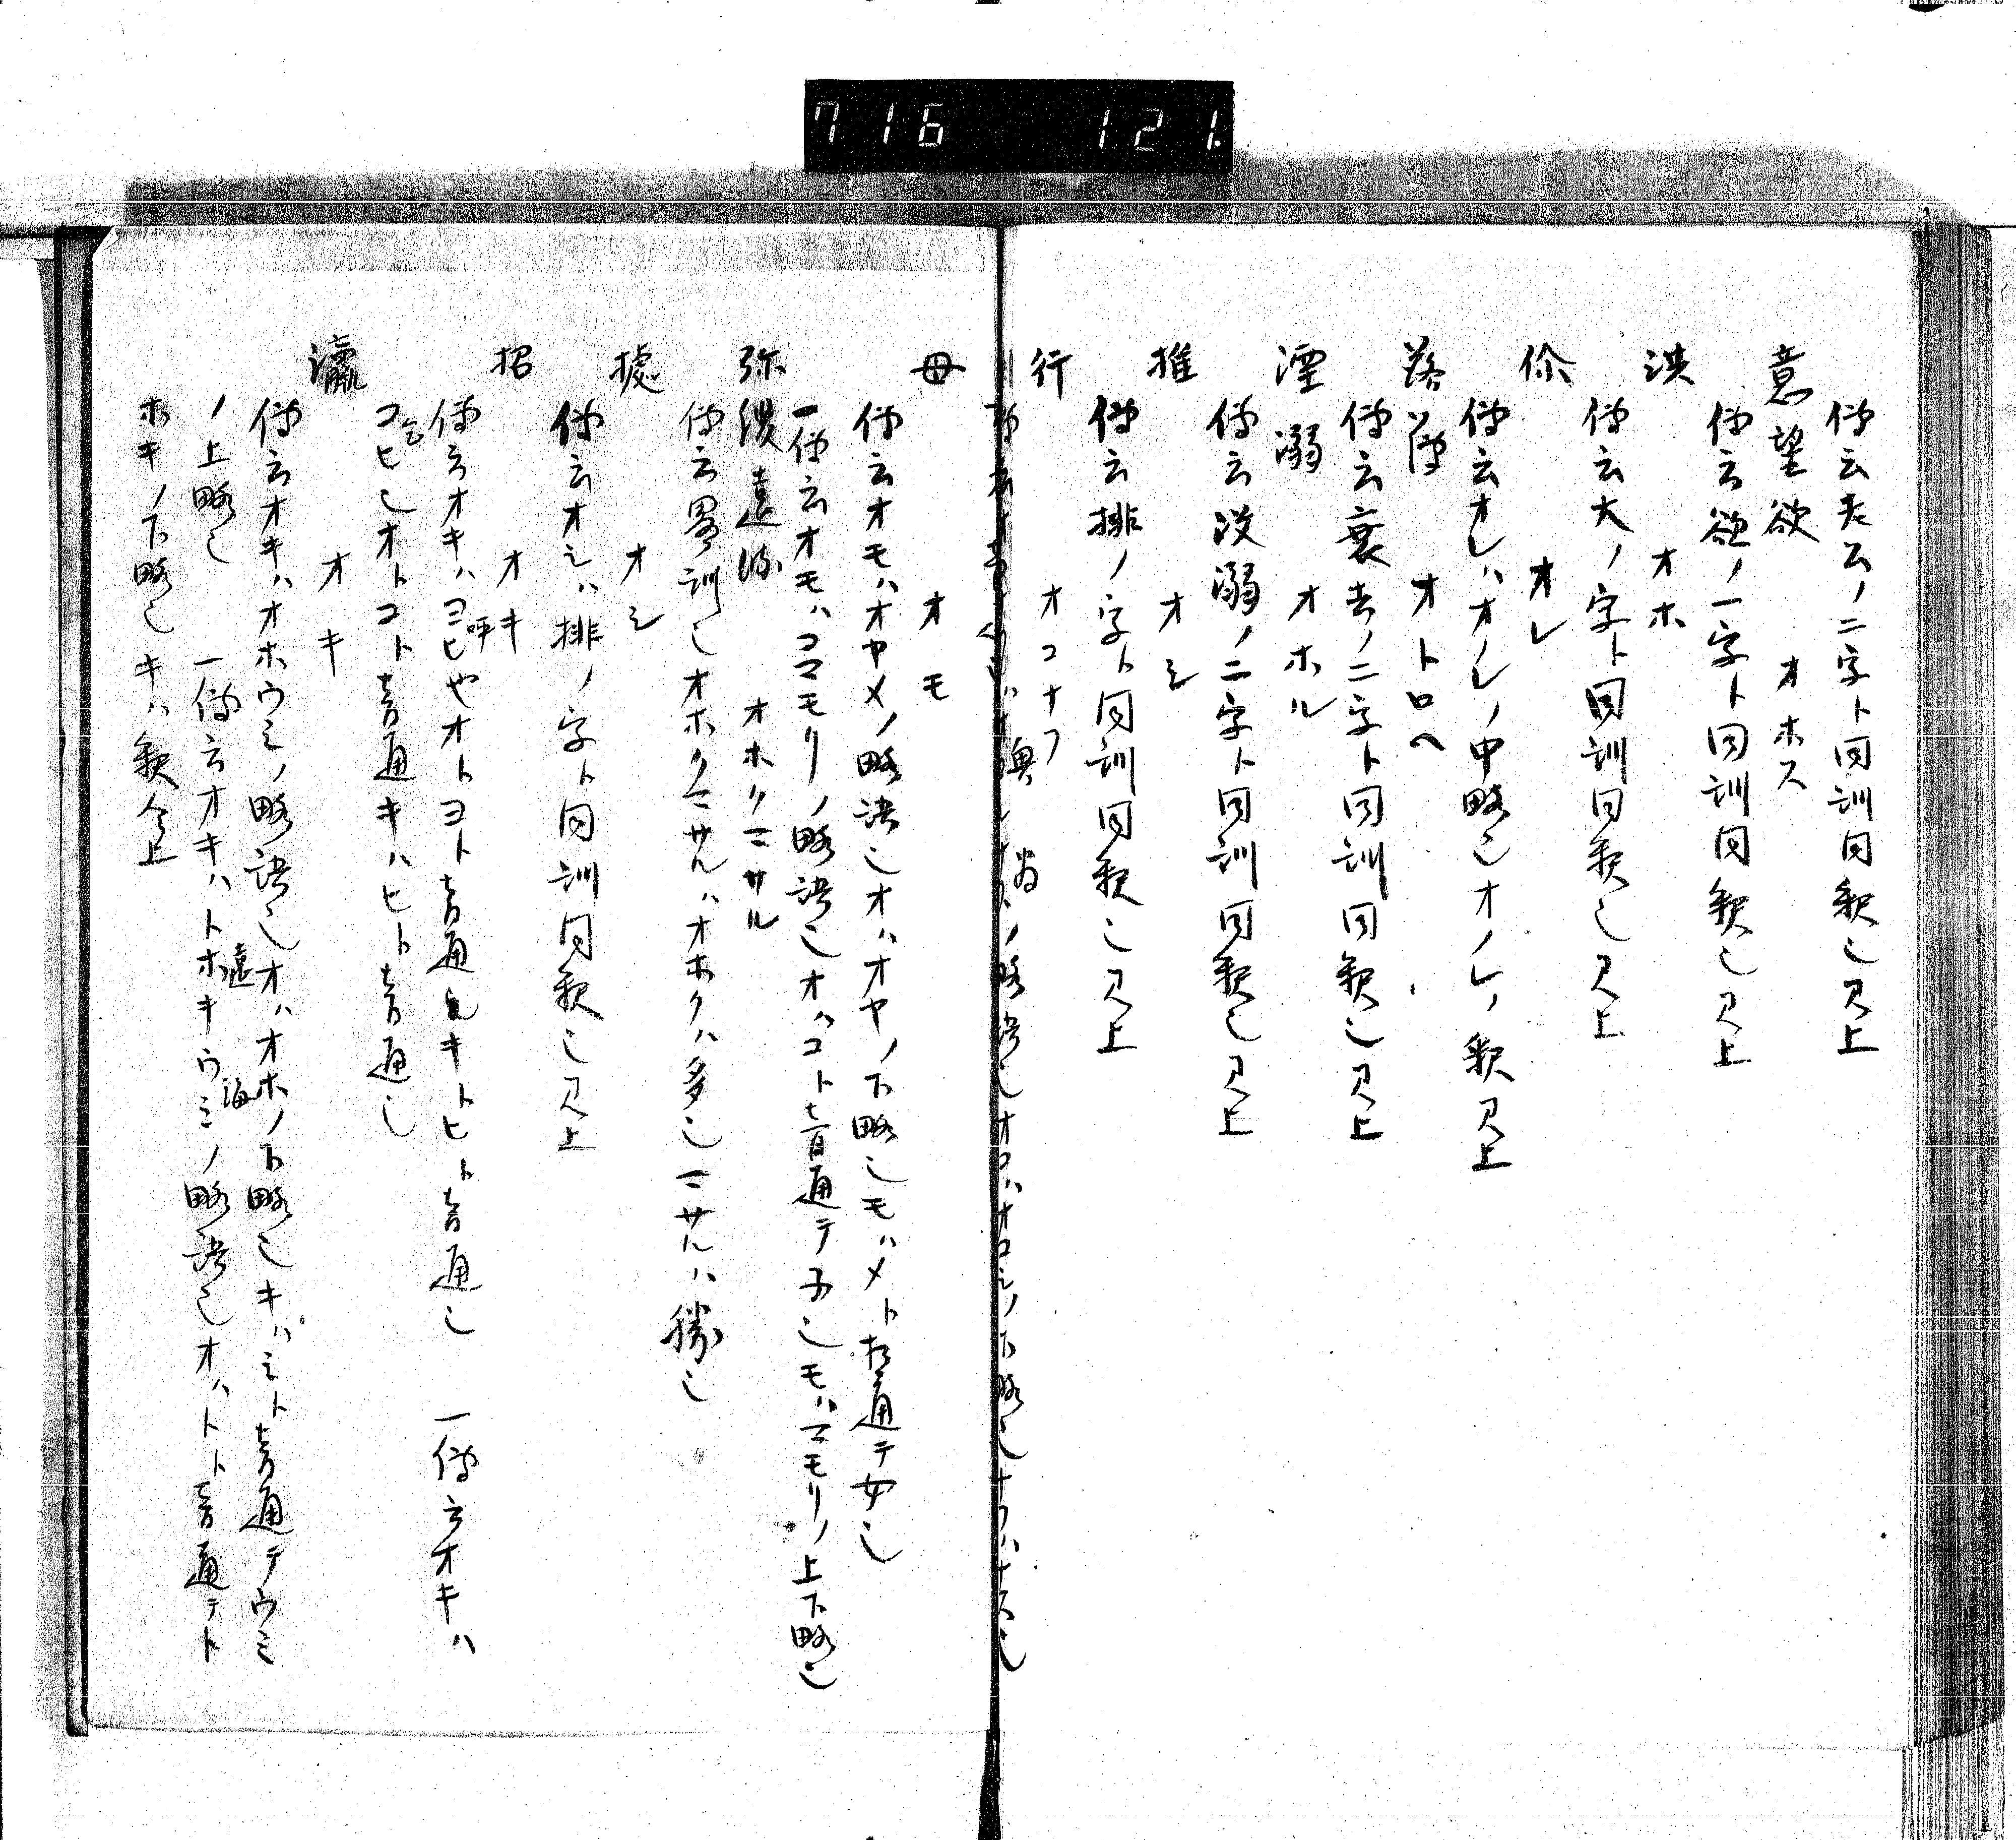 716 121.
傳云老ムノ二字ト同訓同釈也見上
意望欲 オホス
傳云欲ノ一字ト同訓同釈也見上
洪 オホ
傳云大ノ字ト同訓同釈也見上
你 オレ
傳云オレハオノレノ中略也オノレノ釈見上
落堕 オトロヘ
傳云衰去ノ二字ト同訓同釈也見上
湮溺 オホル
傳云没溺ノ二字ト同訓同釈也見上
推 オシ
傳云排ノ字ト同訓同釈也見上
行 オコナフ
母 オモ
傳云オモハオヤメノ略語也オハオヤノ下略也モハメト相通テ女也
一傳云オモハコマモリノ略語也オハコト音通テ子也モハマモリノ上下略也
弥 オホクマサル
傳云畧訓也オホクマサルハオホクハ多也マサルハ勝也
オシ
傳云オシハ排ノ字ト同訓同釈也見上
招 オキ
傳云オキハヨヒ呼也オトヨト音通也キトヒト音通也 一傳云オキハ
コヒ也オトコト音通キハヒト音通也
瀛 オキ
傳云オキハオホウミノ略語也オハオホノ下略也キハミト音通テウミ
ノ上略也 一傳云オキハトホキウミ遠海ノ略語也オハトト音通テト
ホキノ下略也キハ釈仝上